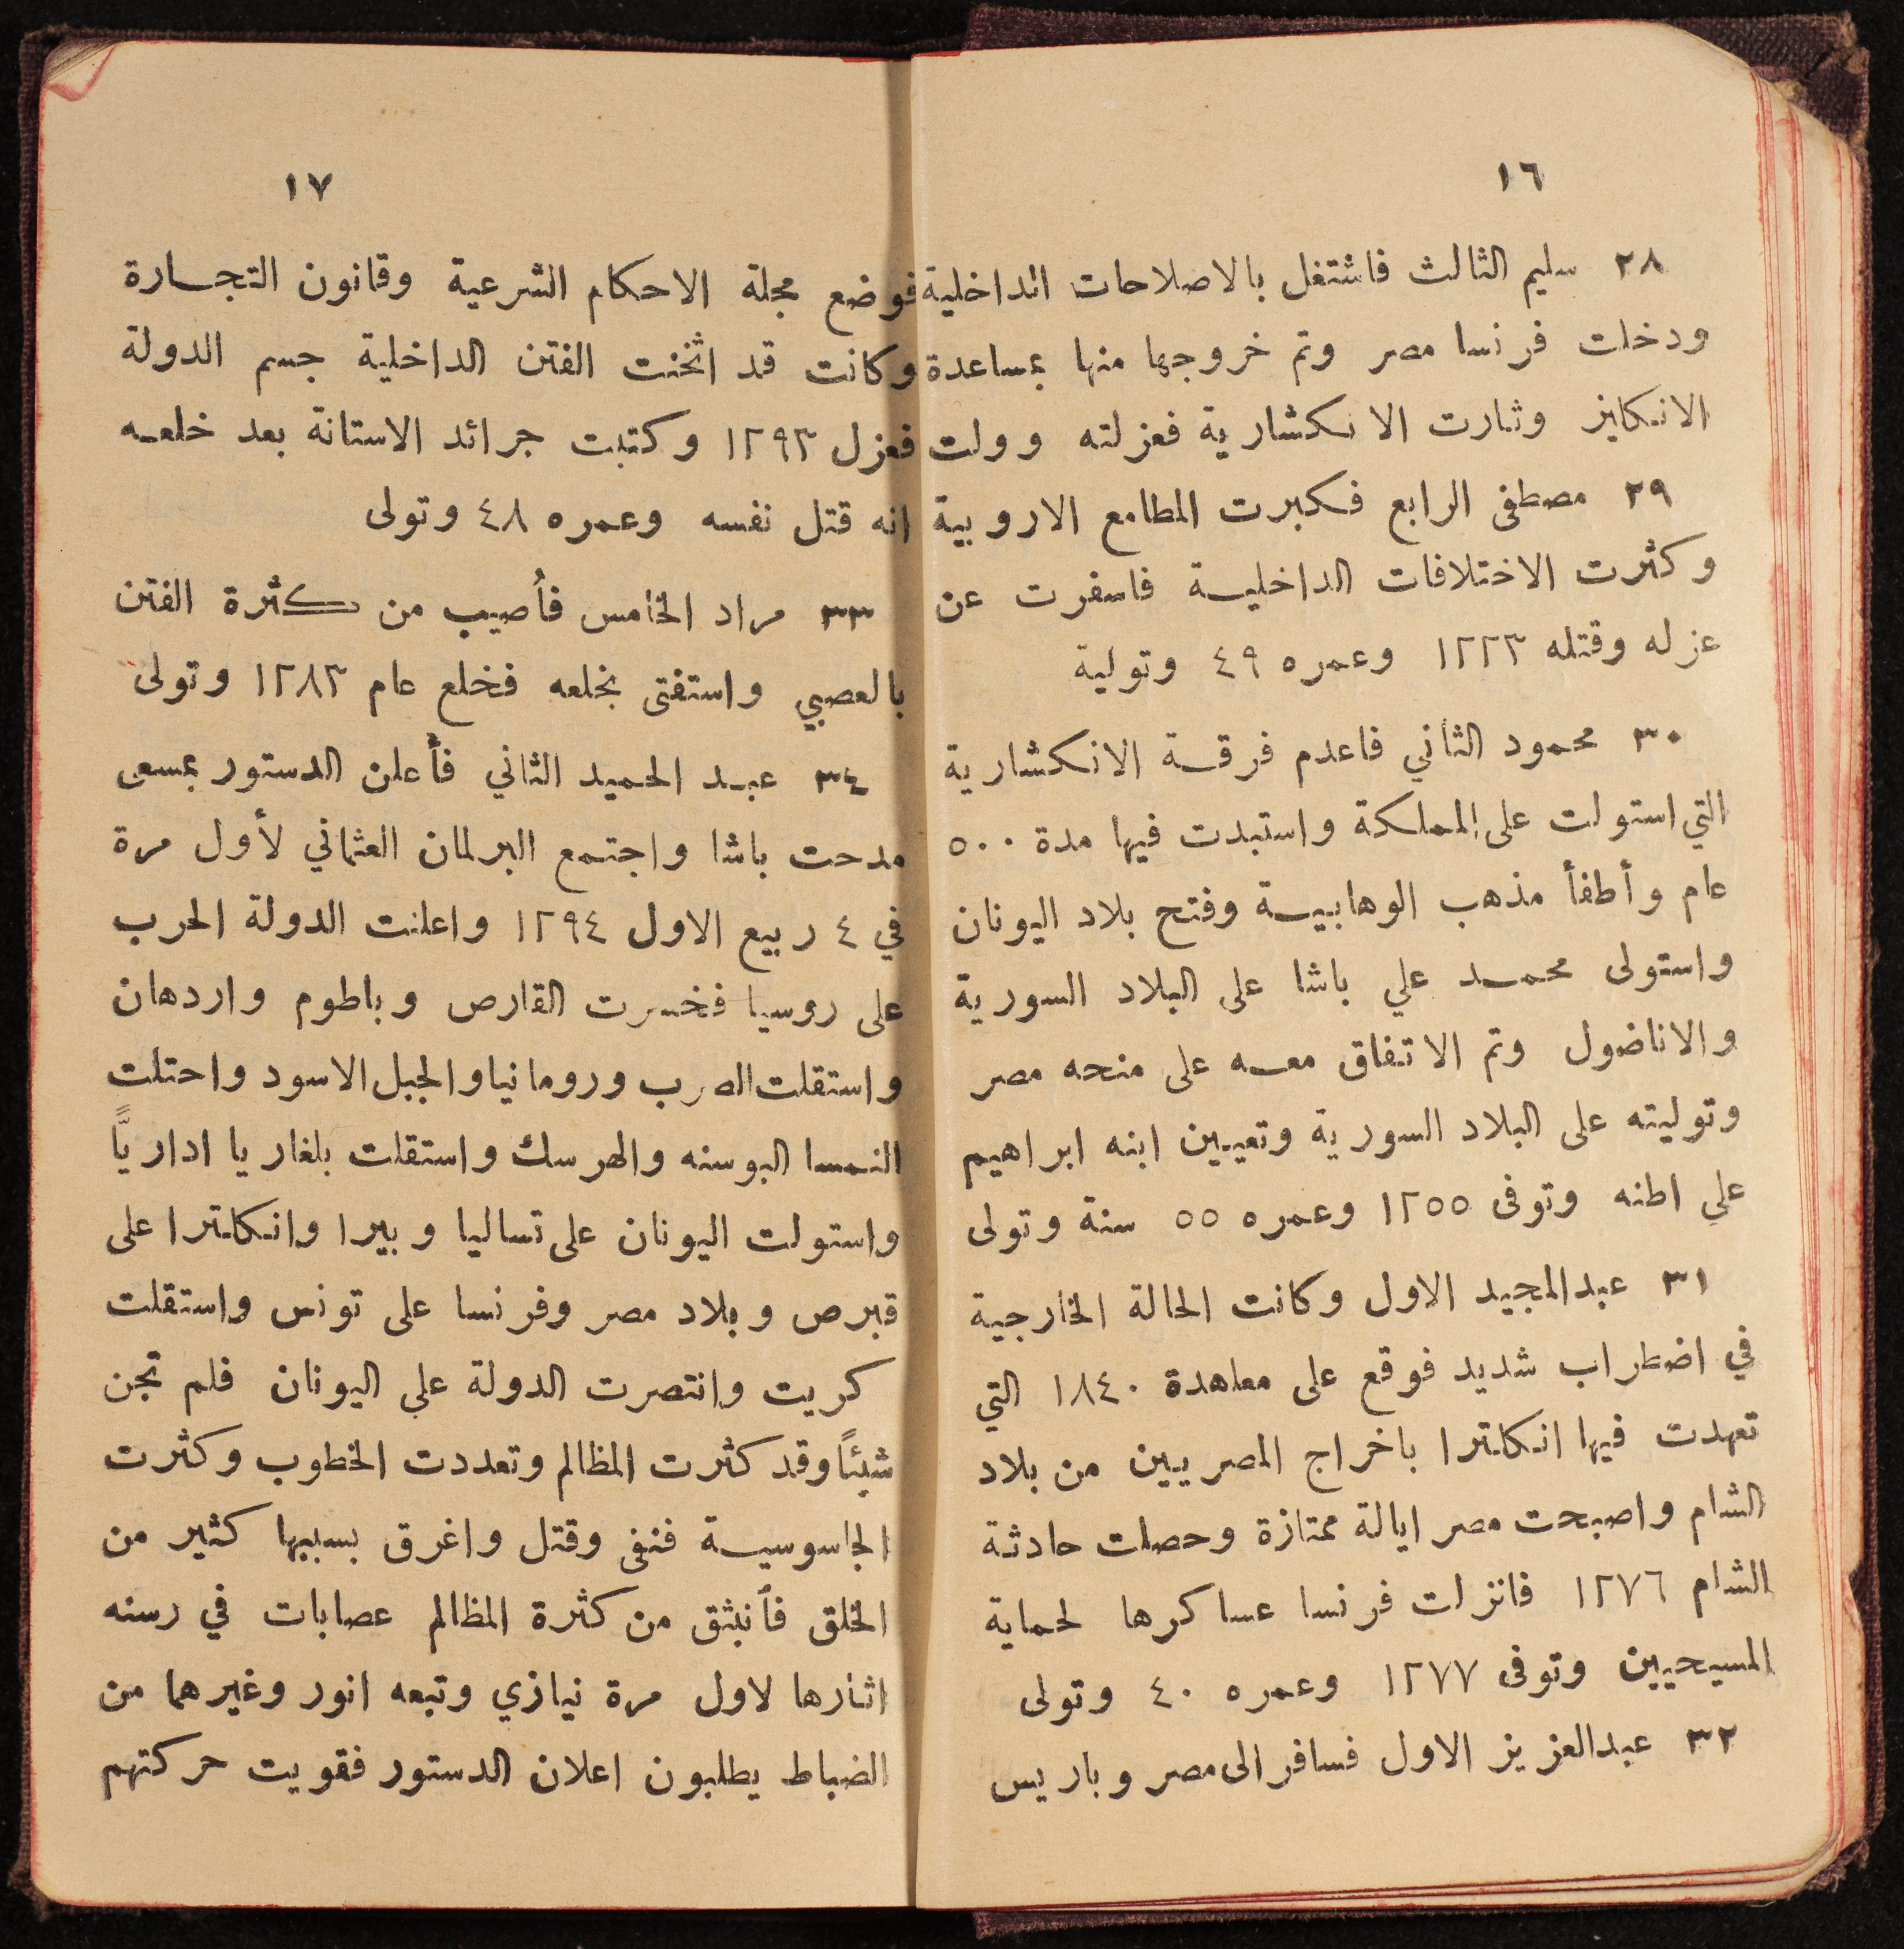 ١٦
٢٨ سليم الثالث فاشتغل بالاصلاحات الداخلية
ودخلت فرنسا مصر وتم خروجها منها بمساعدة
الانكليز وثارت الانكشارية فعزلته وولت
٢٩ مصطفى الرابع فكبرت المطامع الاروبية
وكثرت الاختلافات الداخلية فاسفرت عن
عزله وقتله ١٢٢٣ وعمره ٤٩ وتولية
٣٠ محمود الثاني فاعدم فرقة الانكشارية
التي استولت على المملكة واستبدت فيها مدة ٥٠٠
عام وأطفأ مذهب الوهابية وفتح بلاد اليونان
واستولى محمد علي باشا على البلاد السورية
والاناضول وتم الاتفاق معه على منحه مصر
وتوليته على البلاد السورية وتعيين ابنه ابراهيم
علي اطنه وتوفى ١٢٥٥ وعمره ٥٥ سنة وتولى
٣١ عبدالمجيد الاول وكانت الحالة الخارجية
في اضطراب شديد فوقع على معاهدة ١٨٤٠ التي
تعهدت فيها انكلترا باخراج المصريين من بلاد
الشام واصبحت مصر ايالة ممتازة وحصلت حادثة
الشام ١٢٧٦ فانزلت فرنسا عساكرها لحماية
المسيحيين وتوفى ١٢٧٧ وعمره ٤٠ وتولى
٣٢ عبدالعزيز الاول فسافر الى مصر وباريس
١٧
فوضع مجلة الاحكام الشرعية وقانون التجارة
وكانت قد اثخنت الفتن الداخلية جسم الدولة
فعزل ١٢٩٣ وكتبت جرائد الاستانة بعد خلعه
انه قتل نفسه وعمره ٤٨ وتولى
٣٣ مراد الخامس فأصيب من كثرة الفتن
بالعصبي واستفتى بخلعه فخلع عام ١٢٨٣ وتولى
٣٤ عبد الحميد الثاني فأعلن الدستور بمسعى
مدحت باشا واجتمع البرلمان العثماني لأول مرة
في ٤ ربيع الاول ١٢٩٤ واعلنت الدولة الحرب
على روسيا فخسرت القارص وباطوم واردهان
واستقلت الصرب ورومانيا والجبل الاسود واحتلت
النمسا البوسنه والهرسك واستقلت بلغاريا اداريًّا
واستولت اليونان على تساليا وبيرا وانكلترا على
قبرص وبلاد مصر وفرنسا على تونس واستقلت
كريت وانتصرت الدولة علي اليونان فلم تجن
شيئًا وقد كثرت المظالم وتعددت الخطوب وكثرت
الجاسوسية فنفى وقتل واغرق بسببها كثير من
الخلق فأنبثق من كثرة المظالم عصابات في رسنه
اثارها لاول مرة نيازي وتبعه انور وغيرهما من
الضباط يطلبون اعلان الدستور فقويت حركتهم